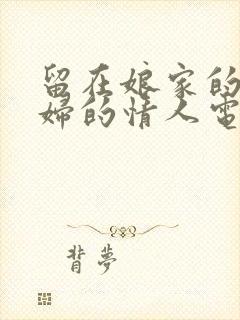 留在娘家的
婦的情人電
背夢